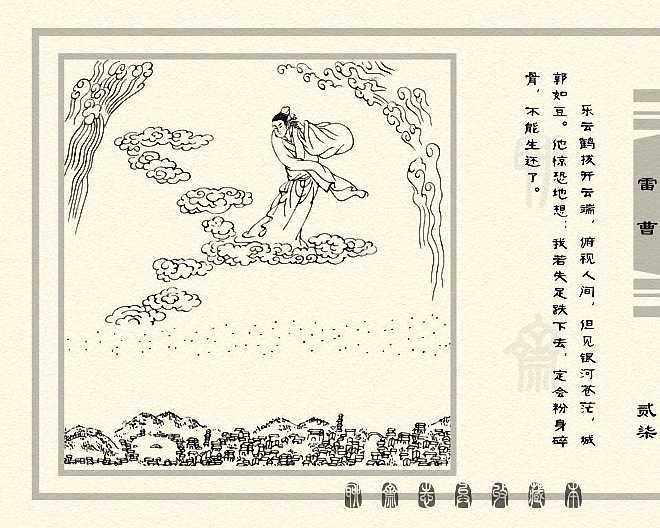 乐云鹤拨开云端，俯视人间，但见银河苍茫，城
郭如豆。他惊恐地想：我若失足跌下去，定会粉身碎
骨，不能生还了。
雷曹
贰柒
聊斋志异收藏本